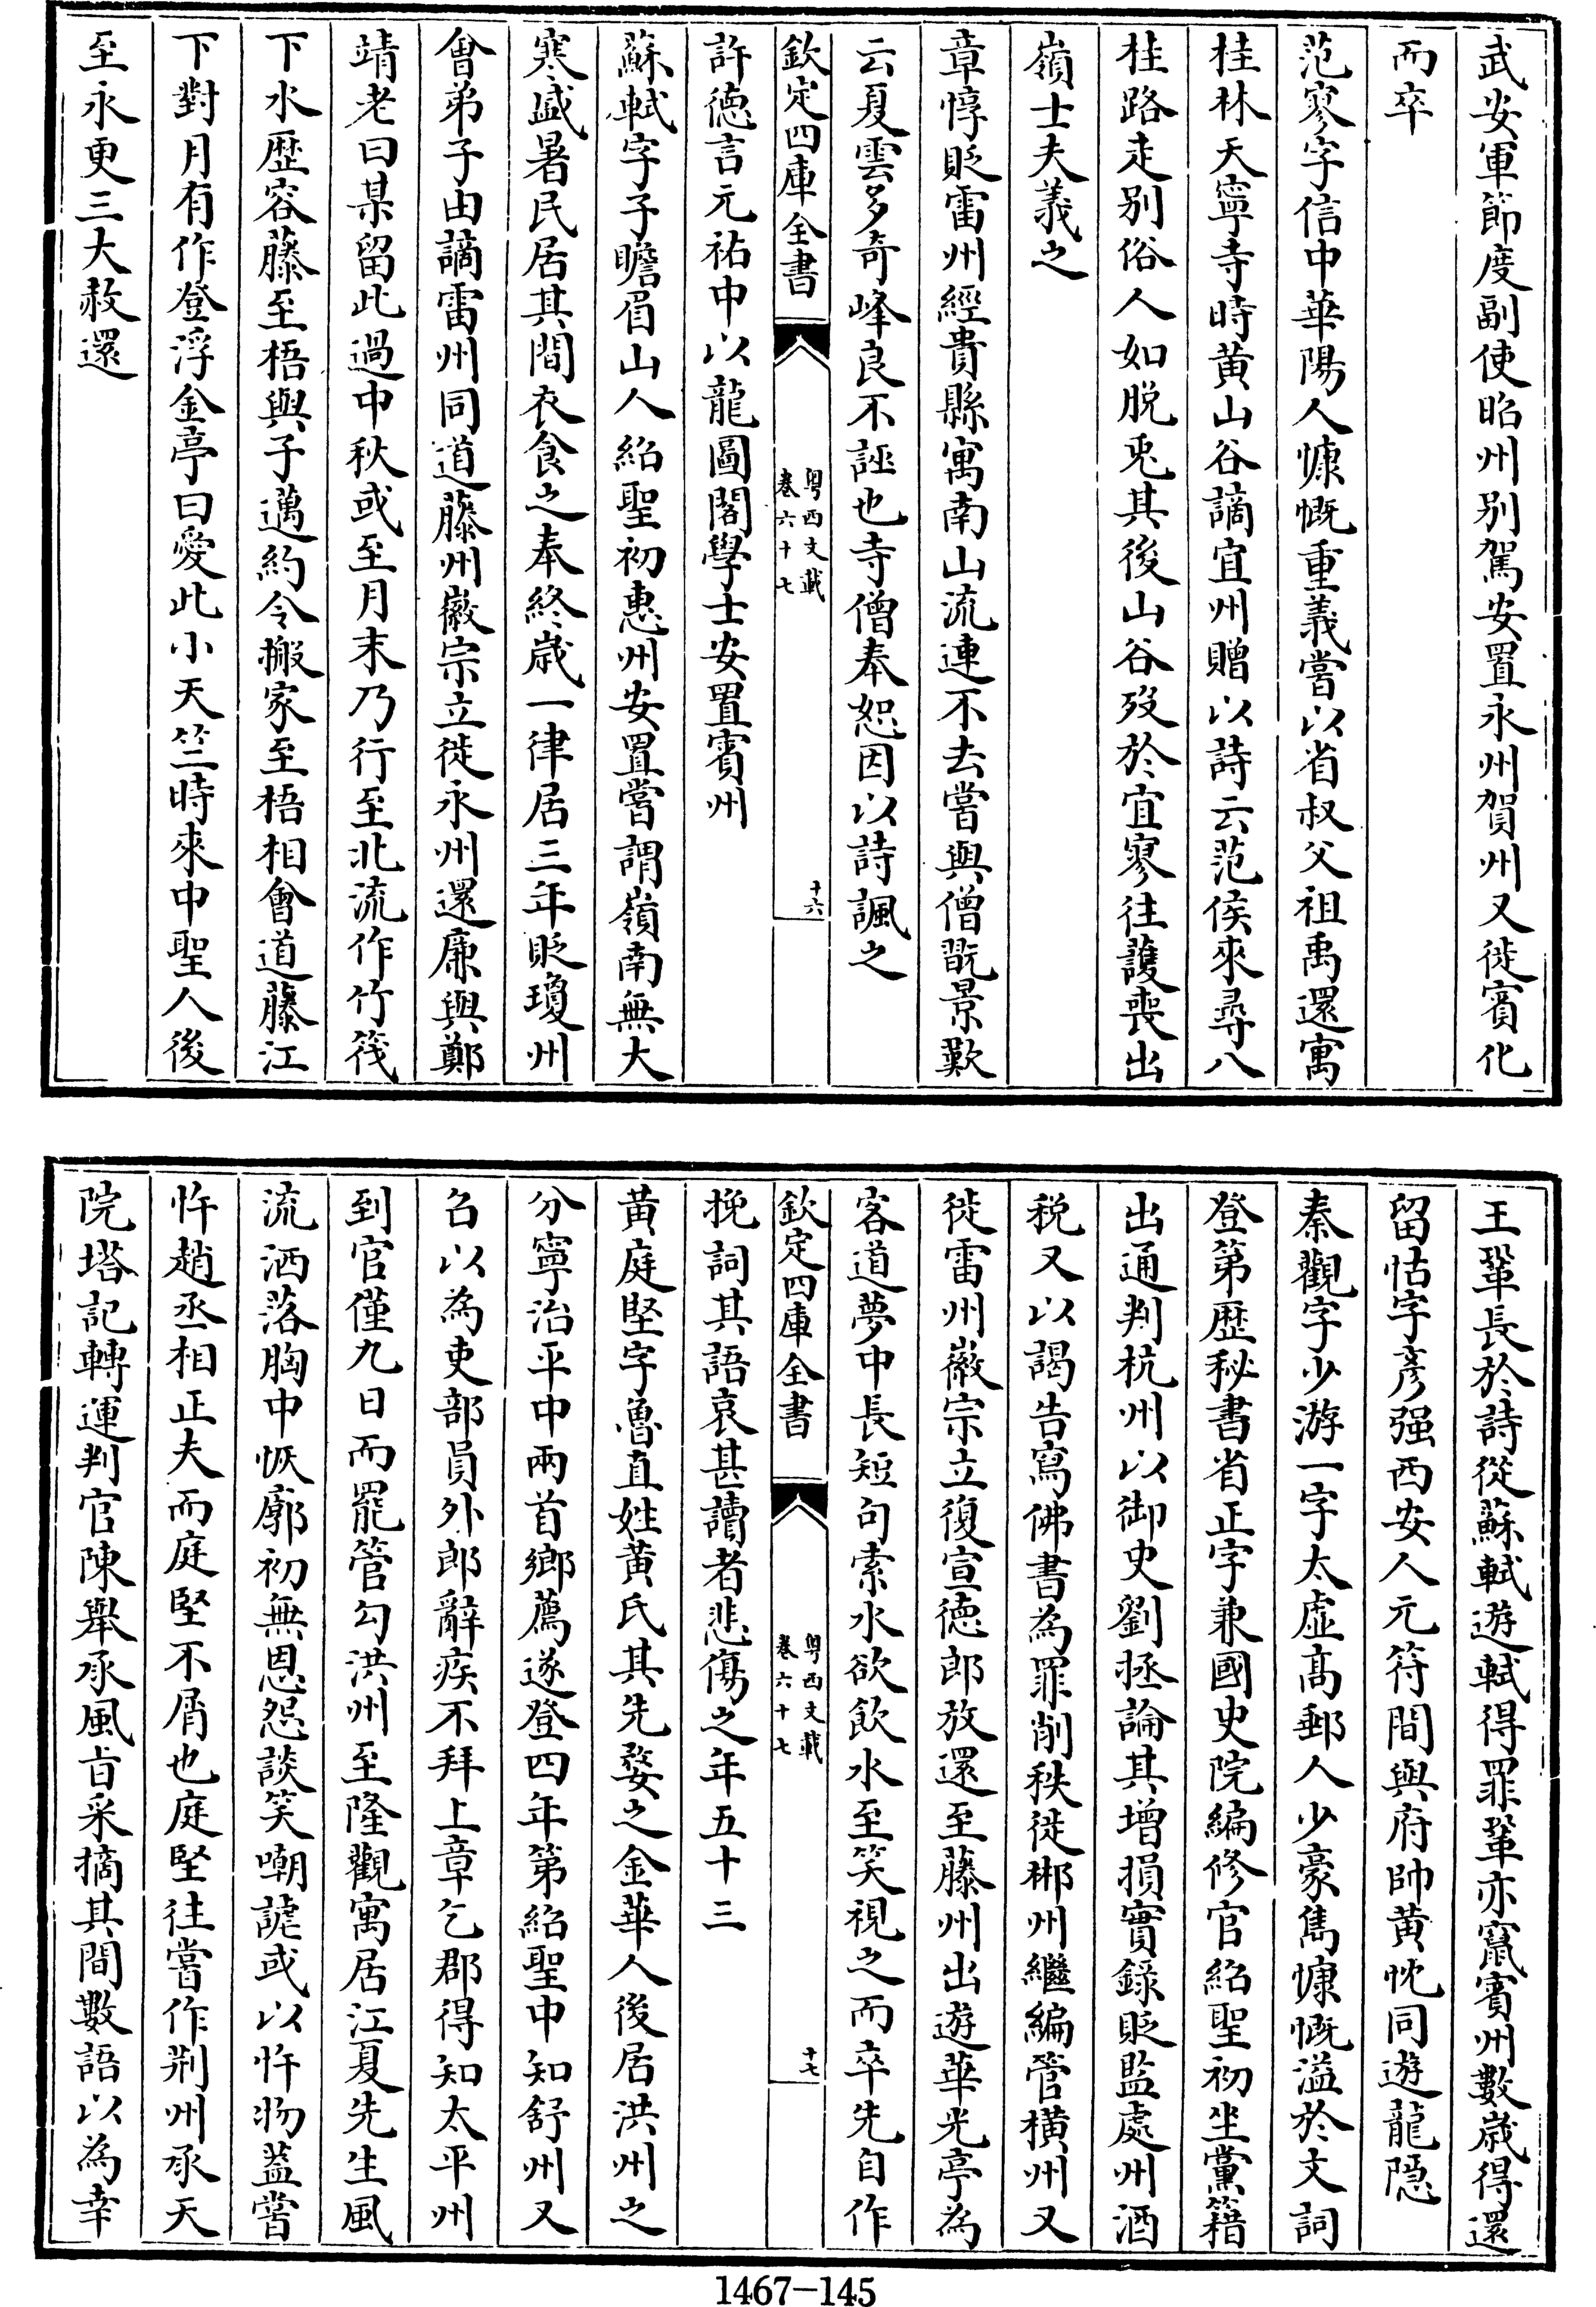 武安軍節度副使昭州别駕安置永州賀州又徙賓化
而卒
范寥字信中華陽人慷慨重義嘗以省叔父祖禹還寓
桂林天寧寺時黄山谷謫宜州贈以詩云范侯來尋八
桂路走别俗人如脱兎其後山谷殁於宜寥往護喪出
嶺士夫義之
章惇貶雷州經貴縣寓南山流連不去嘗與僧翫景歎
云夏雲多奇峰良不誣也寺僧奉恕因以詩諷之
欽定四庫全書
粤西文載
卷六十七
十六
許徳言元祐中以龍圖閣學士安置賓州
蘇軾字子瞻眉山人紹聖初惠州安置嘗謂嶺南無大
寒盛暑民居其間衣食之奉終歳一律居三年貶瓊州
會弟子由謫雷州同道藤州徽宗立徙永州還亷與鄭
靖老曰某留此過中秋或至月末乃行至北流作竹筏
下水歴容藤至梧與子邁約令搬家至梧相會道藤江
下對月有作登浮金亭曰愛此小天竺時來中聖人後
至永更三大赦還
王鞏長於詩從蘇軾遊軾得罪鞏亦竄賓州數歳得還
留怙字彥强西安人元符間與府帥黄忱同遊龍隠
秦觀字少游一字太虚高郵人少豪雋慷慨溢於文詞
登第歴秘書省正字兼國史院編修官紹聖初坐黨籍
出通判杭州以御史劉拯論其增損實錄貶監處州酒
税又以謁告寫佛書為罪削秩徙郴州繼編管横州又
徙雷州徽宗立復宣徳郎放還至藤州出遊華光亭為
客道夢中長短句索水欲飲水至笑視之而卒先自作
欽定四庫全書
粤西文載
卷六十七
十七
挽詞其語哀甚讀者悲傷之年五十三
黃庭堅字魯直姓黃氏其先婺之金華人後居洪州之
分寧治平中兩首鄉薦遂登四年第紹聖中知舒州又
名以為吏部員外郎辭疾不拜上章乞郡得知太平州
到官僅九日而罷管勾洪州至隆觀寓居江夏先生風
流洒落胸中恢廓初無恩怨談笑嘲謔或以忤物葢嘗
忤趙丞相正夫而庭堅不屑也庭堅往嘗作荆州承天
院塔記轉運判官陳舉承風㫖采摘其間數語以為幸
1467-145